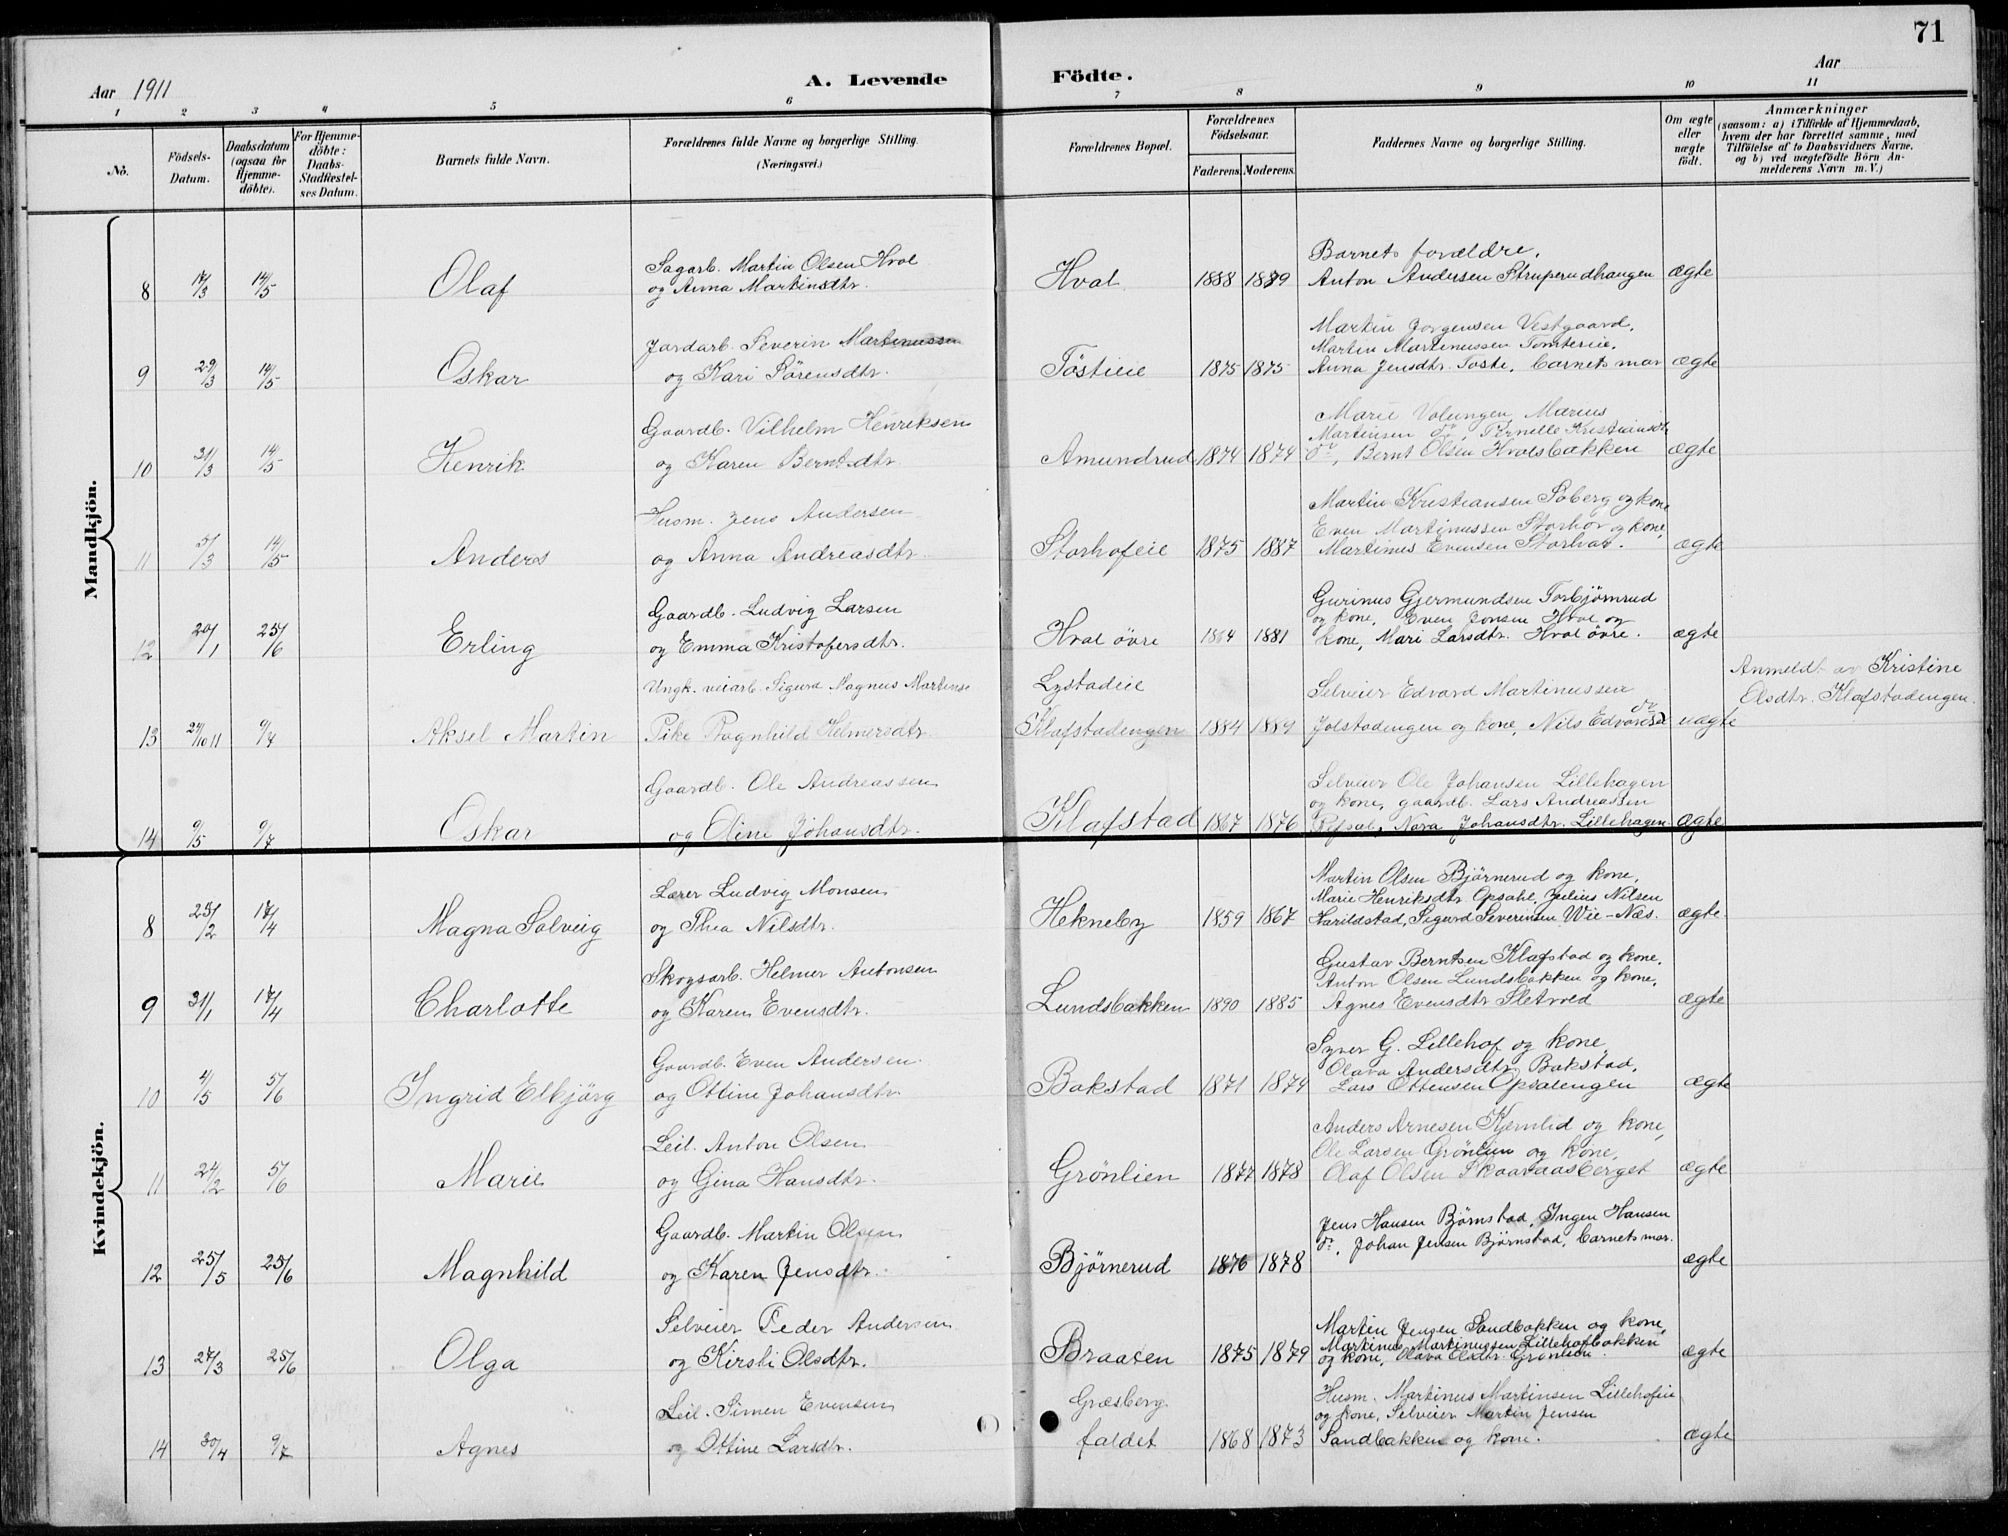 71
Aar 1911
A. Levende
Födte.
Aar
1 2 3 4 5 6 7 8 9 10 11
No.
Födsels-Datum.
Daabsdatum (ogsaa for Hjemme-döbte).
For Hjemme-döbte: Daabs-Stadfæstel-ses Datum.
Barnets fulde Navn.
Forældrenes fulde Navne og borgerlige Stilling. (Næringsvei.)
Forældrenes Bopæl.
Forældrenes Födselsaar.
Faderens. Moderens.
Faddernes Navne og borgerlige Stilling.
Om ægte eller uægte födt.
Anmærkninger (saasom: a) i Tilfælde af Hjemmedaab, hvem der har forrettet samme, med Tilföielse af to Daabsvidners Navne, og b) ved uægtefödte Börn An-melderens Navn m. V.)
Mandkjön.
8 17/3 14/5 Olaf
Sagarb. Martin Olsen Hval
og Anna Martinsdtr.
Hval 1888 1889
Barnets forældre,
Anton Andersen Struperudhaugen ægte
9 29/3 14/5 Oskar
Jordarb. Severin Martinussen
og Kari Sörensdtr.
Töstieie 1875 1875
Martin Jorgensen Vestgaard,
Martin Martinussen Tomtereie,
Anna Jensdtr. Toste, barnets mor ægte
10 31/3 14/5 Henrik
Gaardb. Vilhelm Henriksen
og Karen Berntsdtr
Amundrud 1874 1874
Marie Volungen, Marius
Martinsen do, Pernelle Kristiansdtr
do, Bernt Olsen Hvalsbakken ægte
11 5/3 14/5 Anders
Husm. Jens Andersen
og Anna Andreasdtr.
Storhofeie 1875 1887
Martin Kristiansen Soberg og kone
Even Martinussen Storhov og kone,
Martinus Evensen Storhov. ægte
12 20/1 25/6 Erling
Gaardb. Ludvig Larsen
og Emma Kristofersdtr.
Hval övre 1864 1881
Gurinus Gjermundsen Torbjörnrud
og kone, Even Jonsen Hval og
kone, Mari Larsdtr. Hval övre. ægte
13 24/10 11 9/7 Aksel Martin
Ungk. veiarb. Sigurd Magnus Martinse
Pike Ragnhild Helmersdtr.
Lystadeie
Klafstadengen 1884 1889
Selveier Edvard Martinussen
Jolstadengen og kone, Nils Edvardsen do uægte
Anmeldt av Kristine
Olsdtr. Klafstadengen.
14 9/5 9/7 Oskar
Gaardb. Ole Andreassen
og Oline Johansdtr.
Klafstad 1867 1876
Selveier Ole Johansen Lillehagen
og kone, gaardb. Lars Andreassen
Refsal, Nora Johansdtr. Lillehagen. ægte
Kvindekjön.
8 25/2 17/4 Magna Solveig
Lærer Ludvig Monsen
og Thea Nilsdtr.
Hekneby 1859 1867
Martin Olsen Björnerud og kone,
Marie Henriksdtr Opsahl, Julius Nilsen
Harildstad, Sigurd Severinsen Wie-Næs. ægte
9 31/1 17/4 Charlotte
Skogsarb. Helmer Antonsen
og Karen Evensdtr.
Lundsbakken 1890 1885
Gustav Berntsen Klafstad og kone,
Anton Olsen Lundsbakken og kone,
Agnes Evensdtr Sletvold ægte
10 4/5 5/6 Ingrid Elbjörg
Gaardb. Even Andersen
og Ottine Johansdtr
Bakstad 1871 1874
Syver G. Lillehof og kone,
Olava Andersdtr Bakstad,
Lars Ottensen Opsalengen ægte
11 24/2 5/6 Marie
Leil. Anton Olsen
og Gina Hansdtr.
Grönlien 1877 1878
Anders Arnesen Kjernlid og kone,
Ole Larsen Grönlien og kone,
Olaf Olsen Skaaraasberget ægte
12 25/5 25/6 Magnhild
Gaardb. Martin Olsen
og Karen Jensdtr.
Björnerud 1876 1878
Jens Hansen Björnstad, Ingen Hansen
do, Johan Jensen Björnstad, barnets mor. ægte
13 27/3 25/6 Olga
Selveier Peder Andersen
og Kirsti Olsdtr.
Braaten 1875 1879
Martin Jensen Sandbakken og kone,
Martinus Martinussen Lillehofbakken
og kone, Olava Olsdtr. Grönlien ægte
14 30/4 9/7 Agnes
Leil. Simen Evensen
og Ottine Larsdtr.
Græsberg
faldet 1868 1873
Husm. Martinus Martinsen Lillehofeie
og kone, Selveier Martin Jensen
Sandbakken og kone. ægte